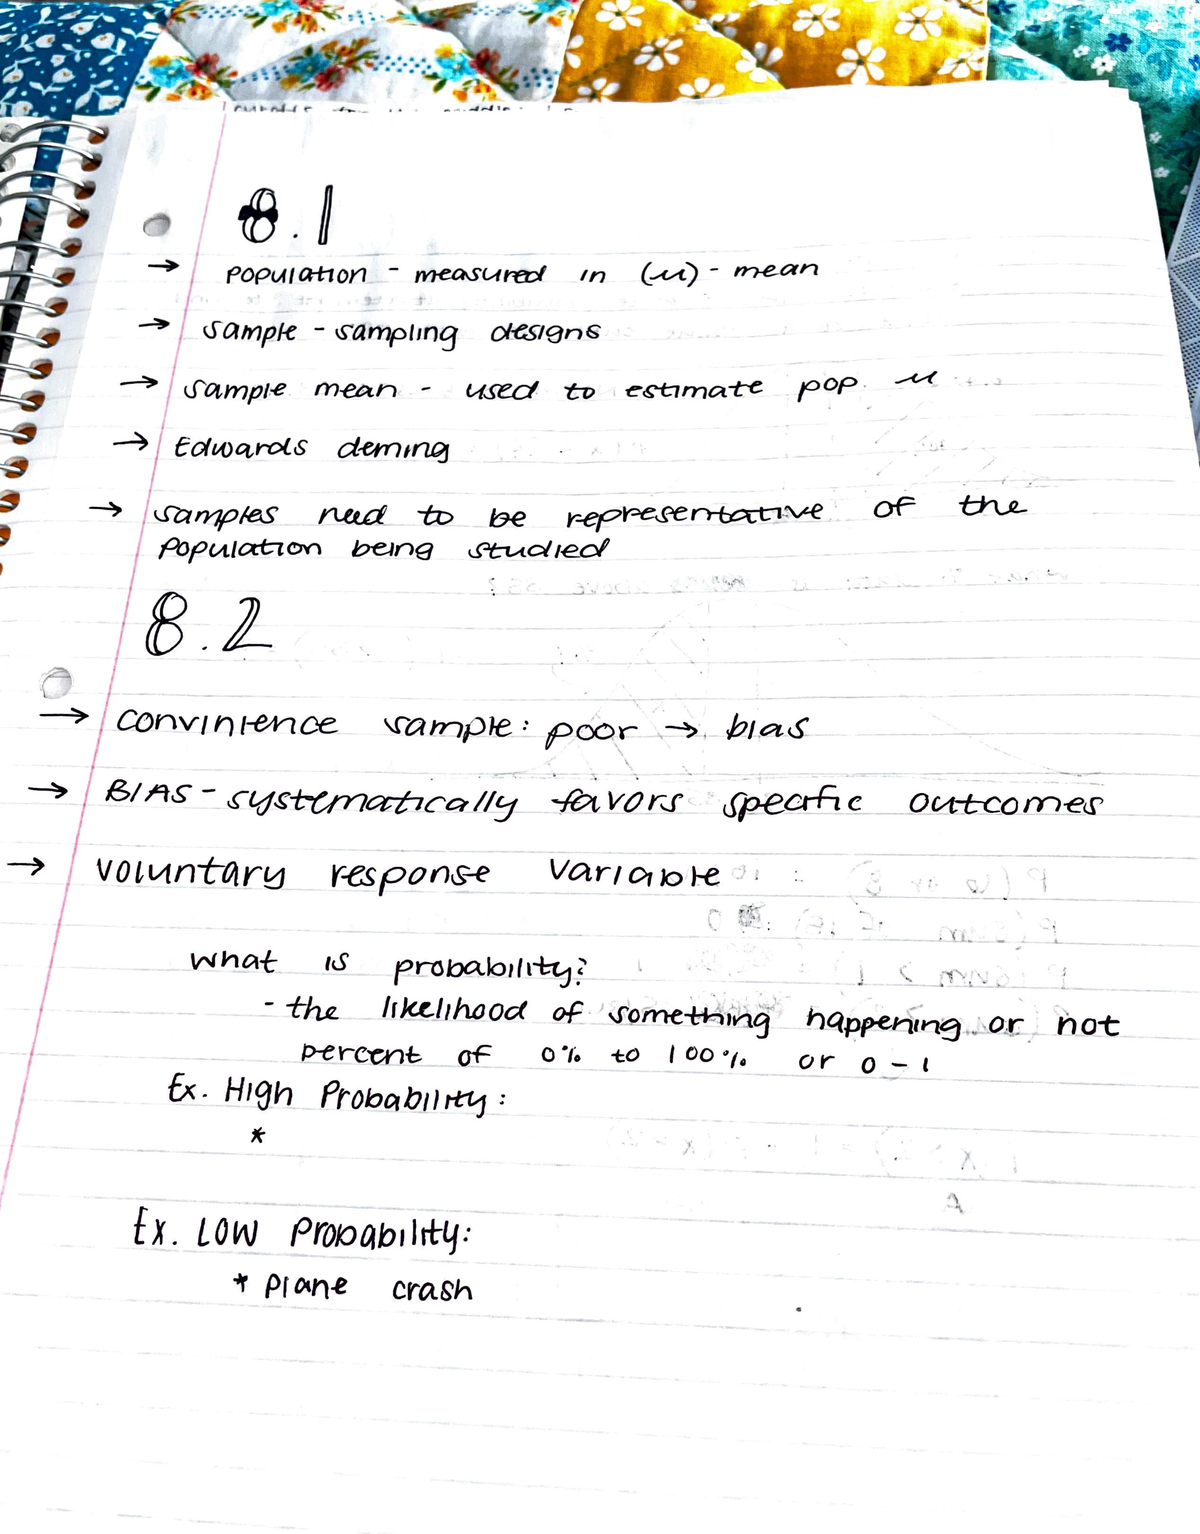 8.1
→ population - measured in (μ) - mean
→ sample - sampling designs
→ sample mean - used to estimate pop. μ
→ Edwards deming
→ samples need to be representative of the
population being studied
8.2
→ convinience sample: poor → bias
→ BIAS - systematically favors specific outcomes
→ voluntary response variable
what is probability?
- the likelihood of something happening or not
percent of 0% to 100% or 0-1
Ex. High Probability:
*
Ex. LOW Probability:
* plane crash